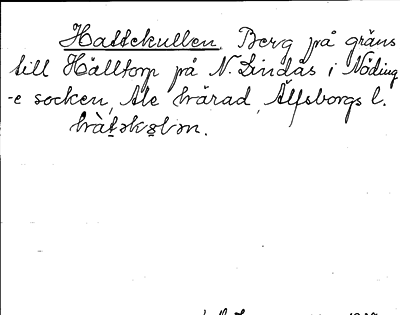 Hattekullen. Berg på gräns
till Hälltorp på N. Lindås i Nöding
-e socken, Ale härad, Älfsborgs l.